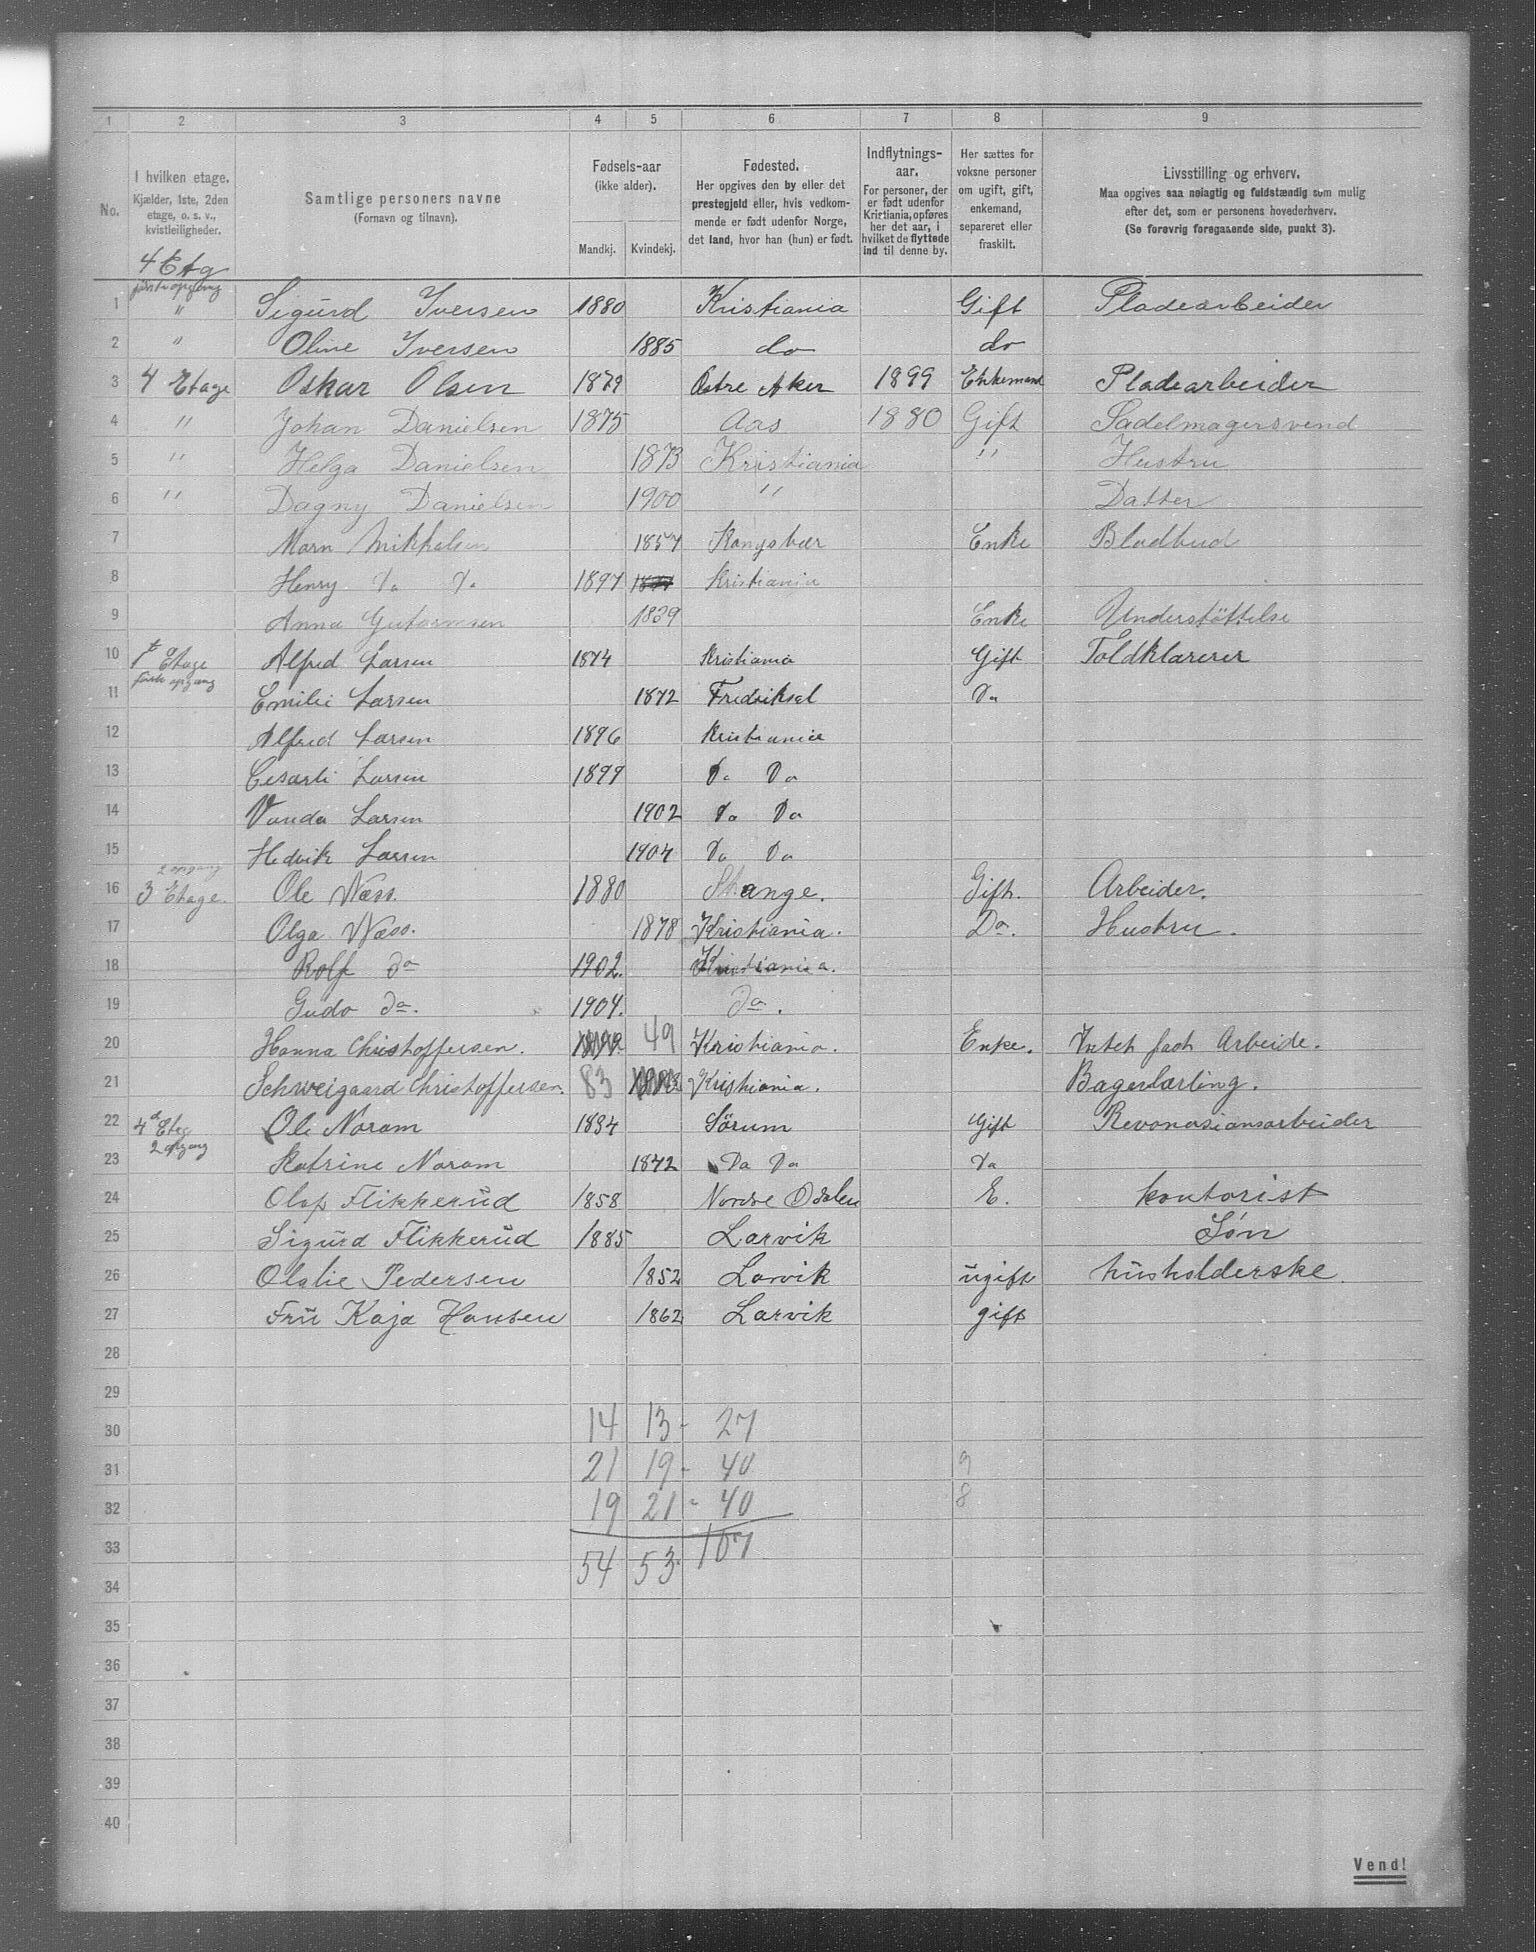 1 2 3 4 5 6 7 8 9
No.
I hvilken etage.
Kjælder, 1ste, 2den
etage, o. s. v.,
kvistleiligheder.
Samtlige personers navne
(Fornavn og tilnavn).
Fødsels-aar
(ikke alder).
Mandkj. Kvindekj.
Fødested.
Her opgives den by eller det
prestegjeld eller, hvis vedkom-
mende er født udenfor Norge,
det land, hvor han (hun) er født.
Indflytnings-
aar.
For personer, der
er født udenfor
Kristiania, opføres
her det aar, i
hvilket de flyttede
ind til denne by.
Her sættes for
voksne personer
om ugift, gift,
enkemand,
separeret eller
fraskilt.
Livsstilling og erhverv.
Maa opgives saa nøiagtig og fuldstændig som mulig
efter det, som er personens hovederhverv.
(Se forøvrig foregaaende side, punkt 3).
4 Etg
første opgang
1 " Sigurd Iversen 1880 Kristiania Gift Pladearbeider
2 " Oline Iversen 1885 do do
3 4 Etage Oskar Olsen 1879 Østre Aker 1899 Enkemand Pladearbeider
4 " Johan Danielsen 1875 Aas 1880 Gift Sadelmagersvend
5 " Helga Danielsen 1873 Kristiania " Hustru
6 " Dagny Danielsen 1900 " Datter
7 Marn Mikkelsen 1857 Kongsbær Enke Bladbud
8 Henry Do Do 1897 Kristiania
9 Anna Gutormsen 1839 Enke Understøttelse
10 1st Etage Alfred Larsen 1874 Kristiania Gift Toldklarerer
første opgang
11 Emilie Larsen 1872 Fredriksal Do
12 Alfred Larsen 1896 Kristiania
13 Cesarli Larsen 1899 Do Do
14 Vanda Larsen 1902 Do Do
15 Hedvik Larsen 1904 Do Do
2 opgang
16 3 Etage. Ole Næss. 1880 Stange. Gift. Arbeider.
17 Olga Næss. 1878 Kristiania. Do. Hustru.
18 Rolf do 1902. Kristiania.
19 Gudo do. 1904. do.
20 Hanna Christoffersen. 49 Kristiania. Enke. Intet fast Arbeide.
21 Schweigaard Christoffersen. 83 Kristiania. Bagerlærling.
22 4d Etg Ole Noram 1834 Sørum Gift Revonasionsarbeider
2 opgang
23 Katrine Noram 1842 Do Do Do
24 Olaf Flikkerud 1858 Nordre Odalen E. kontorist
25 Sigurd Flikkerud 1885 Larvik Søn
26 Olalie Pedersen 1852 Larvik ugift husholderske
27 Fru Kaja Hansen 1862 Larvik gift
28
29
30 14 13 - 27
31 21 19 - 40 9
32 19 21 - 40 8
33 54 53 107
34
35
36
37
38
39
40
Vend!